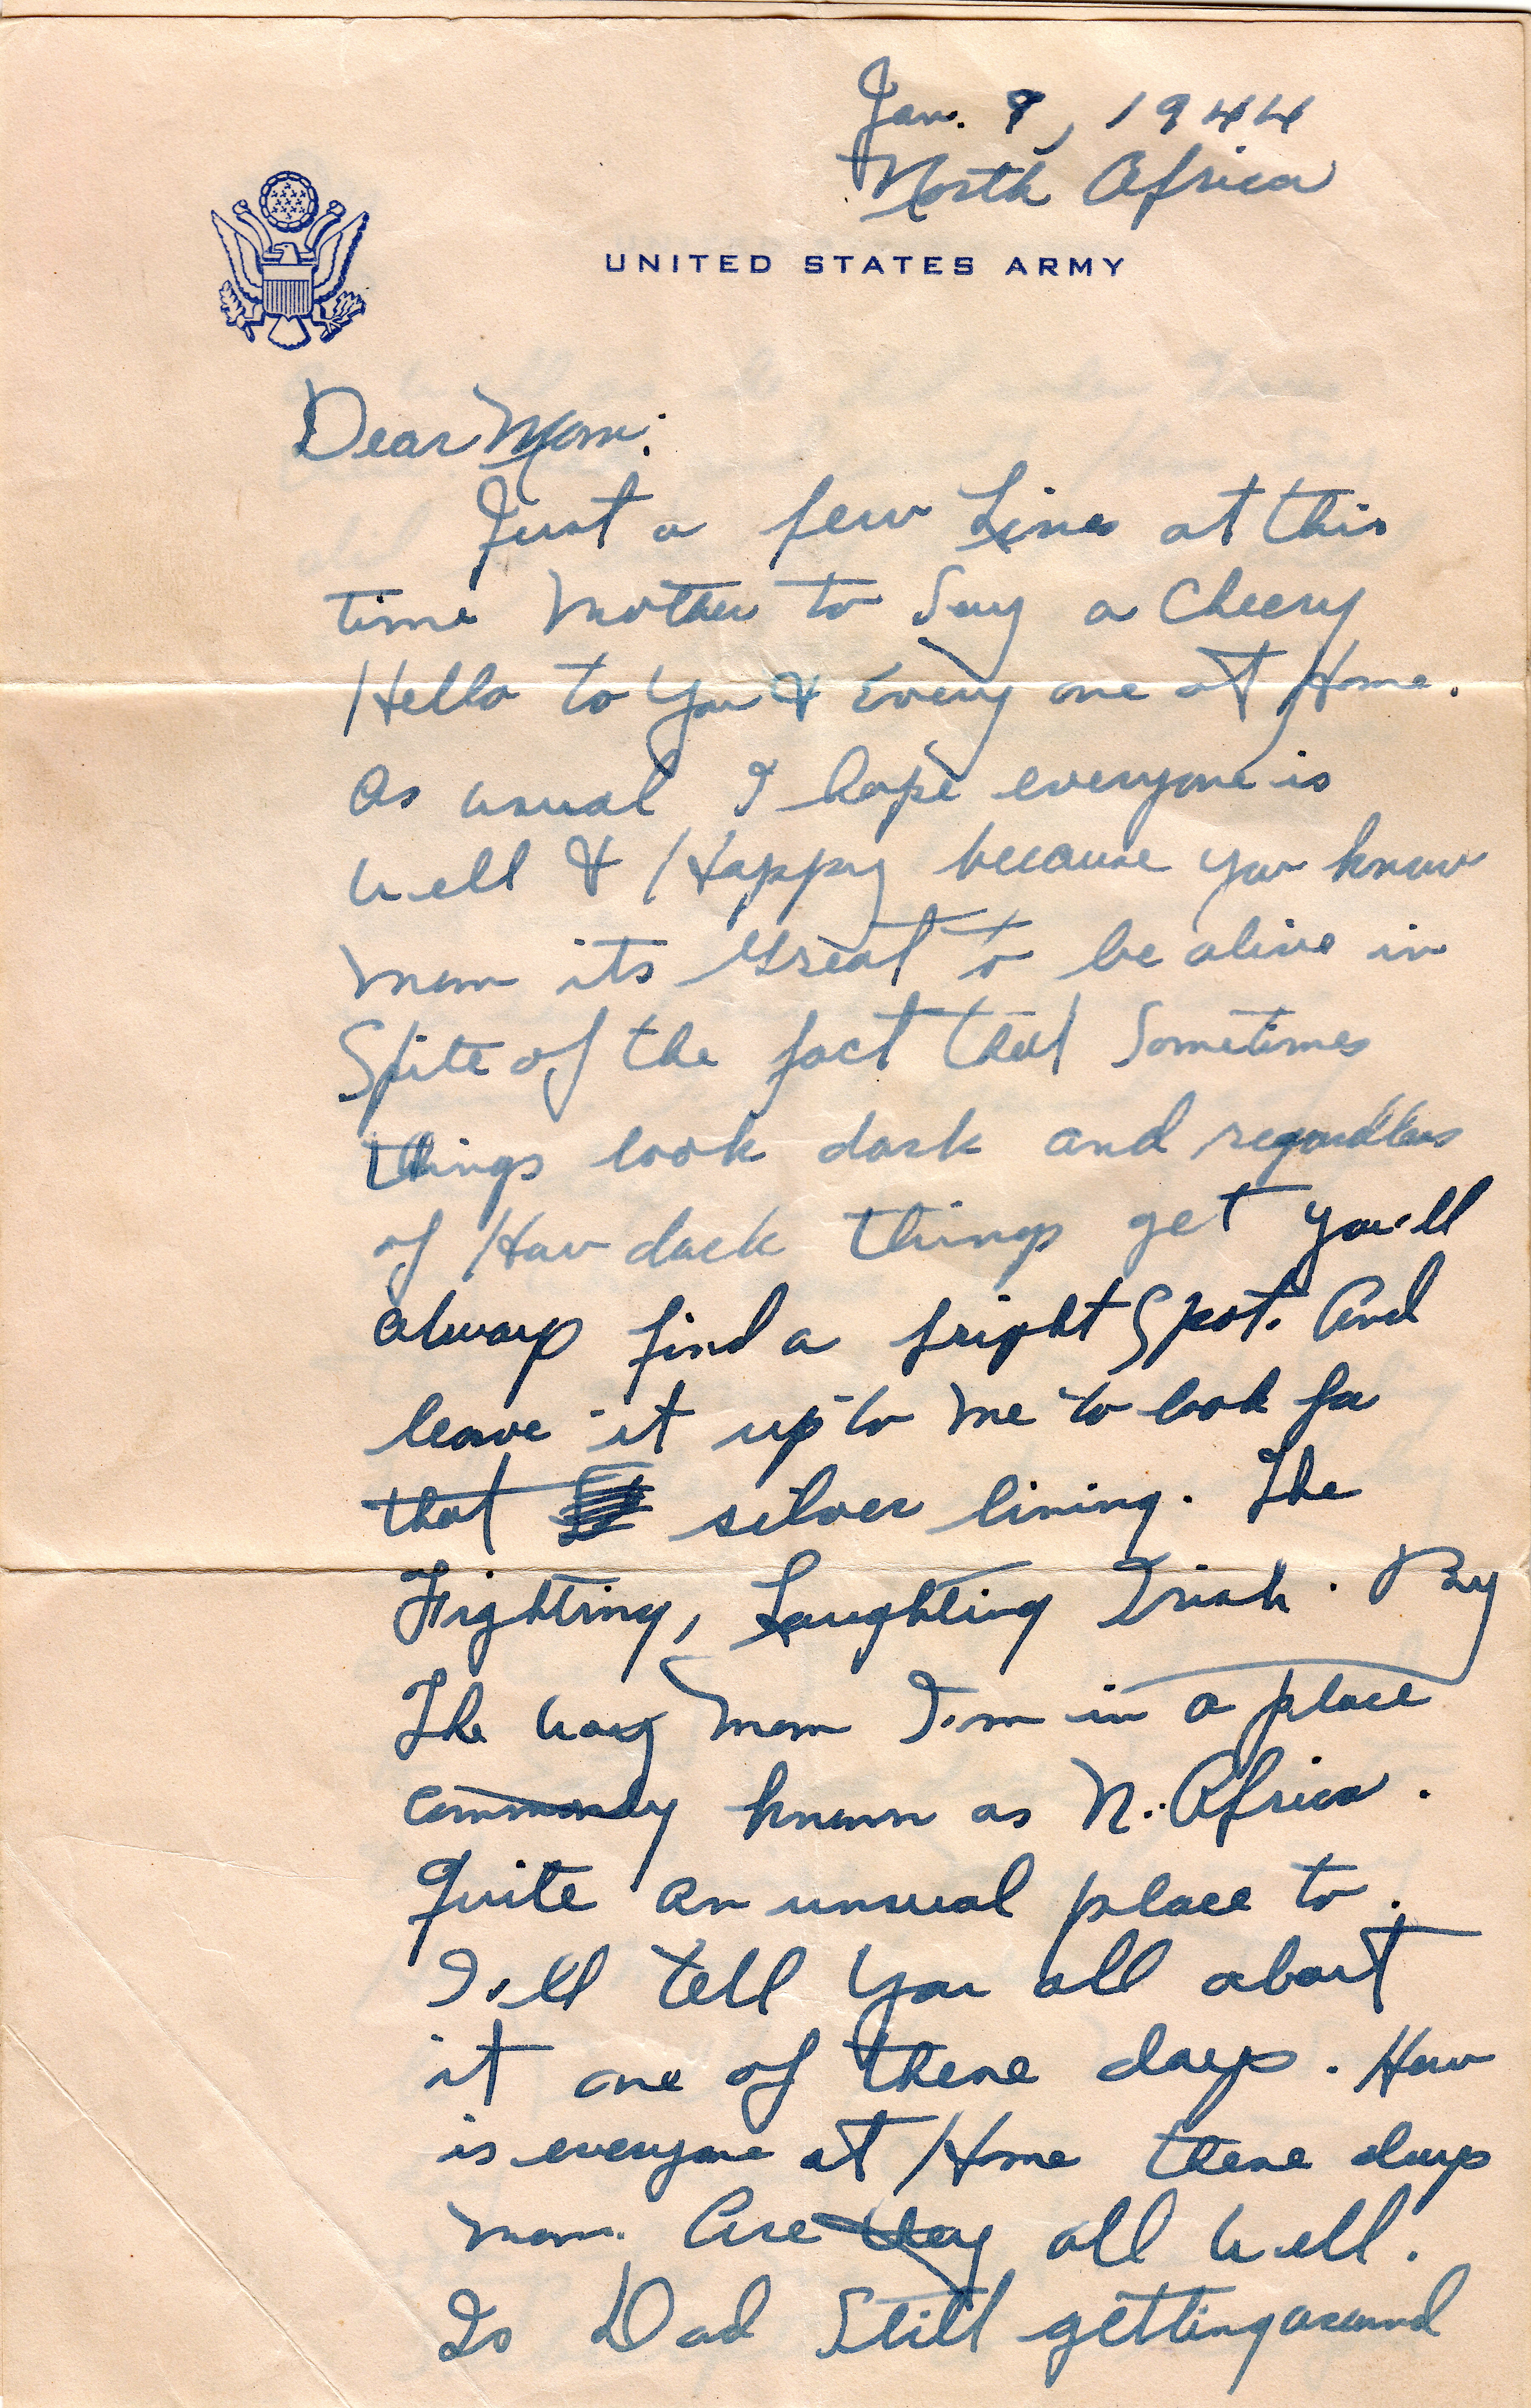 Jan. 9, 1944
North Africa
UNITED STATES ARMY
Dear Mom:
Just a few Lines at this
time Mother to Say a Cheery
Hello to You & Every one at Home.
As usual I hope everyone is
Well & Happy because you know
Mom its Great to be alive in
Spite of the fact that Sometimes
things look dark and regardless
of How dark things get you'll
always find a bright Spot. And
leave it up to me to look for
that silver lining. The
Fighting, Laughting Irish. By
The way Mom I'm in a place
commonly known as N. Africa.
Quite an unsual place to.
I'll tell You all about
it one of these days. How
is everyone at Home these days
Mom. Are they all well.
Is Dad Still getting around